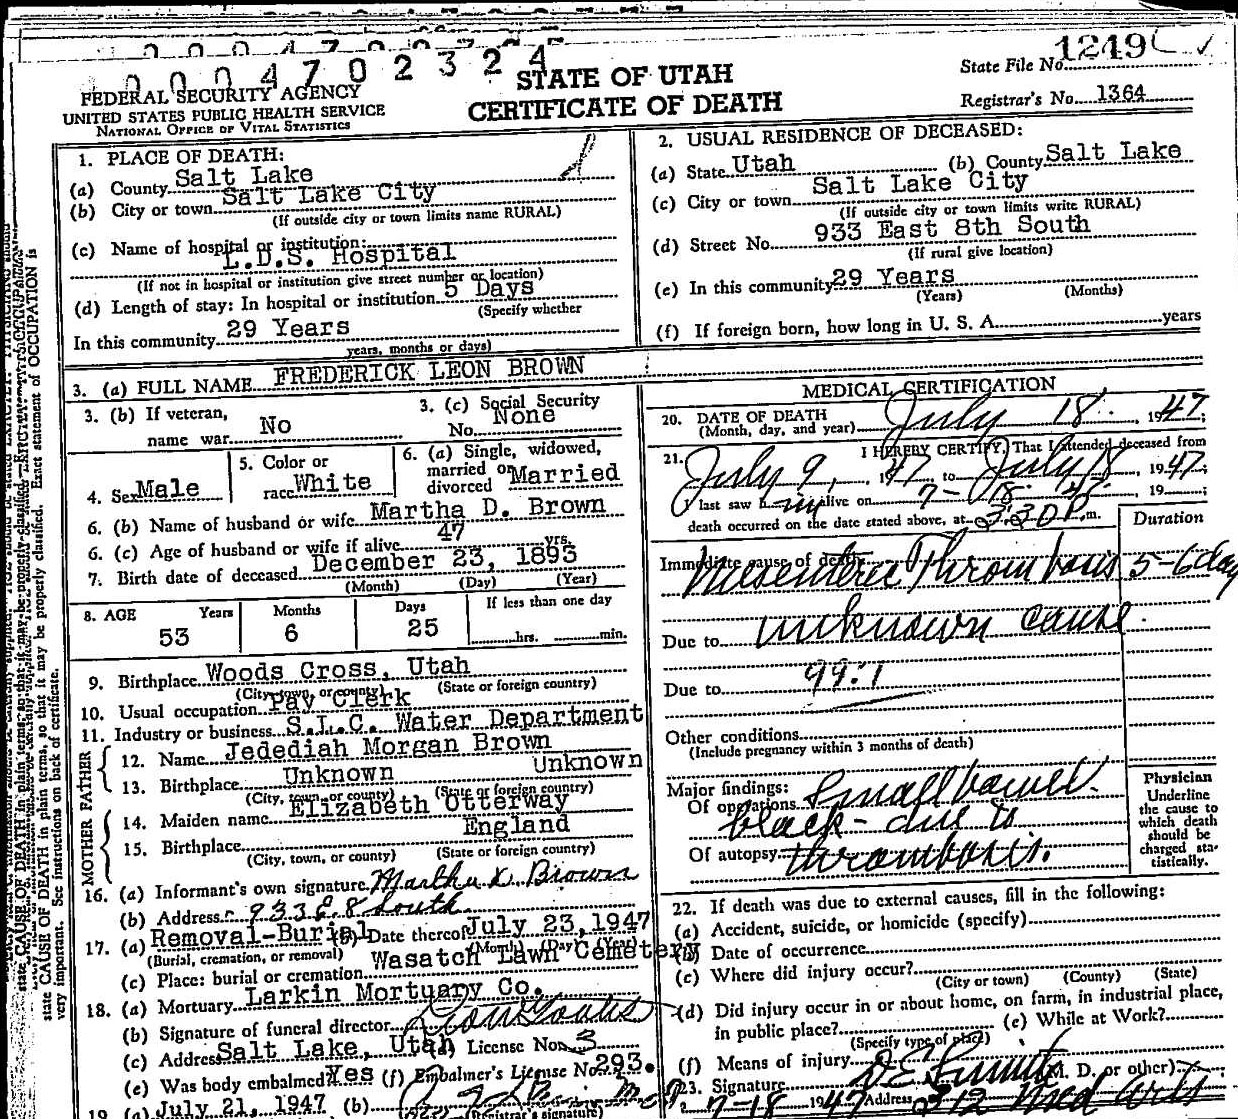 000470232 4
1249
State File No.
STATE OF UTAH
CERTIFICATE OF DEATH
FEDERAL SECURITY AGENCY
UNITED STATES PUBLIC HEALTH SERVICE
NATIONAL OFFICE OF VITAL STATISTICS
Registrar's No. 1364
1. PLACE OF DEATH:
(a) County Salt Lake
(b) City or town Salt Lake City
(If outside city or town limits name RURAL)
(c) Name of hospital or institution:
L.D.S. Hospital
(If not in hospital or institution give street number or location)
(d) Length of stay: In hospital or institution 5 Days
(Specify whether
In this community 29 Years
years, months or days)
2. USUAL RESIDENCE OF DECEASED:
(a) State Utah (b) County Salt Lake
(c) City or town Salt Lake City
(If outside city or town limits write RURAL)
(d) Street No. 933 East 8th South
(If rural give location)
(e) In this community 29 Years
(Years) (Months)
(f) If foreign born, how long in U. S. A. years
3. (a) FULL NAME FREDERICK LEON BROWN
3. (b) If veteran, name war No
3. (c) Social Security No. None
4. Sex Male
5. Color or race White
6. (a) Single, widowed, married or divorced Married
6. (b) Name of husband or wife Martha D. Brown
6. (c) Age of husband or wife if alive 47 yrs.
7. Birth date of deceased December 23, 1893
(Month) (Day) (Year)
8. AGE Years Months Days If less than one day
53 6 25 hrs. min.
9. Birthplace Woods Cross, Utah
(City, town, or county) (State or foreign country)
10. Usual occupation Pay Clerk
11. Industry or business S.L.C. Water Department
FATHER
12. Name Jedediah Morgan Brown
13. Birthplace Unknown Unknown
(City, town, or county) (State or foreign country)
MOTHER
14. Maiden name Elizabeth Otterway
15. Birthplace England
(City, town, or county) (State or foreign country)
16. (a) Informant's own signature Martha Brown
(b) Address 933 E. 8 South
17. (a) Removal-Burial (b) Date thereof July 23, 1947
(Burial, cremation, or removal) (Month) (Day) (Year)
(c) Place: burial or cremation Wasatch Lawn Cemetery
18. (a) Mortuary Larkin Mortuary Co.
(b) Signature of funeral director
(c) Address Salt Lake, Utah (d) License No. 3
(e) Was body embalmed? Yes (f) Embalmer's License No. 293.
19. (a) July 21, 1947 (b)
(Registrar's signature)
MEDICAL CERTIFICATION
20. DATE OF DEATH July 18, 1947
(Month, day, and year)
21. I HEREBY CERTIFY, That I attended deceased from
July 9, 1947 to July 18, 1947;
I last saw him alive on 7-18-47, 19
death occurred on the date stated above, at 3:30 P. m.
Duration
Immediate cause of death Mesenteric Thrombosis 5-6 day
Due to unknown cause
Due to 99:1
Other conditions
(Include pregnancy within 3 months of death)
Major findings:
Of operations Small bowel
black - due to
Of autopsy thrombosis.
Physician
Underline
the cause to
which death
should be
charged sta-
tistically.
22. If death was due to external causes, fill in the following:
(a) Accident, suicide, or homicide (specify)
(b) Date of occurrence
(c) Where did injury occur?
(City or town) (County) (State)
(d) Did injury occur in or about home, on farm, in industrial place,
in public place? (e) While at Work?
(Specify type of place)
(f) Means of injury
23. Signature (M. D. or other)
7-18 1947 Address
state CAUSE OF DEATH in plain terms, so that it may be properly classified. Exact statement of OCCUPATION is
very important. See instructions on back of certificate.